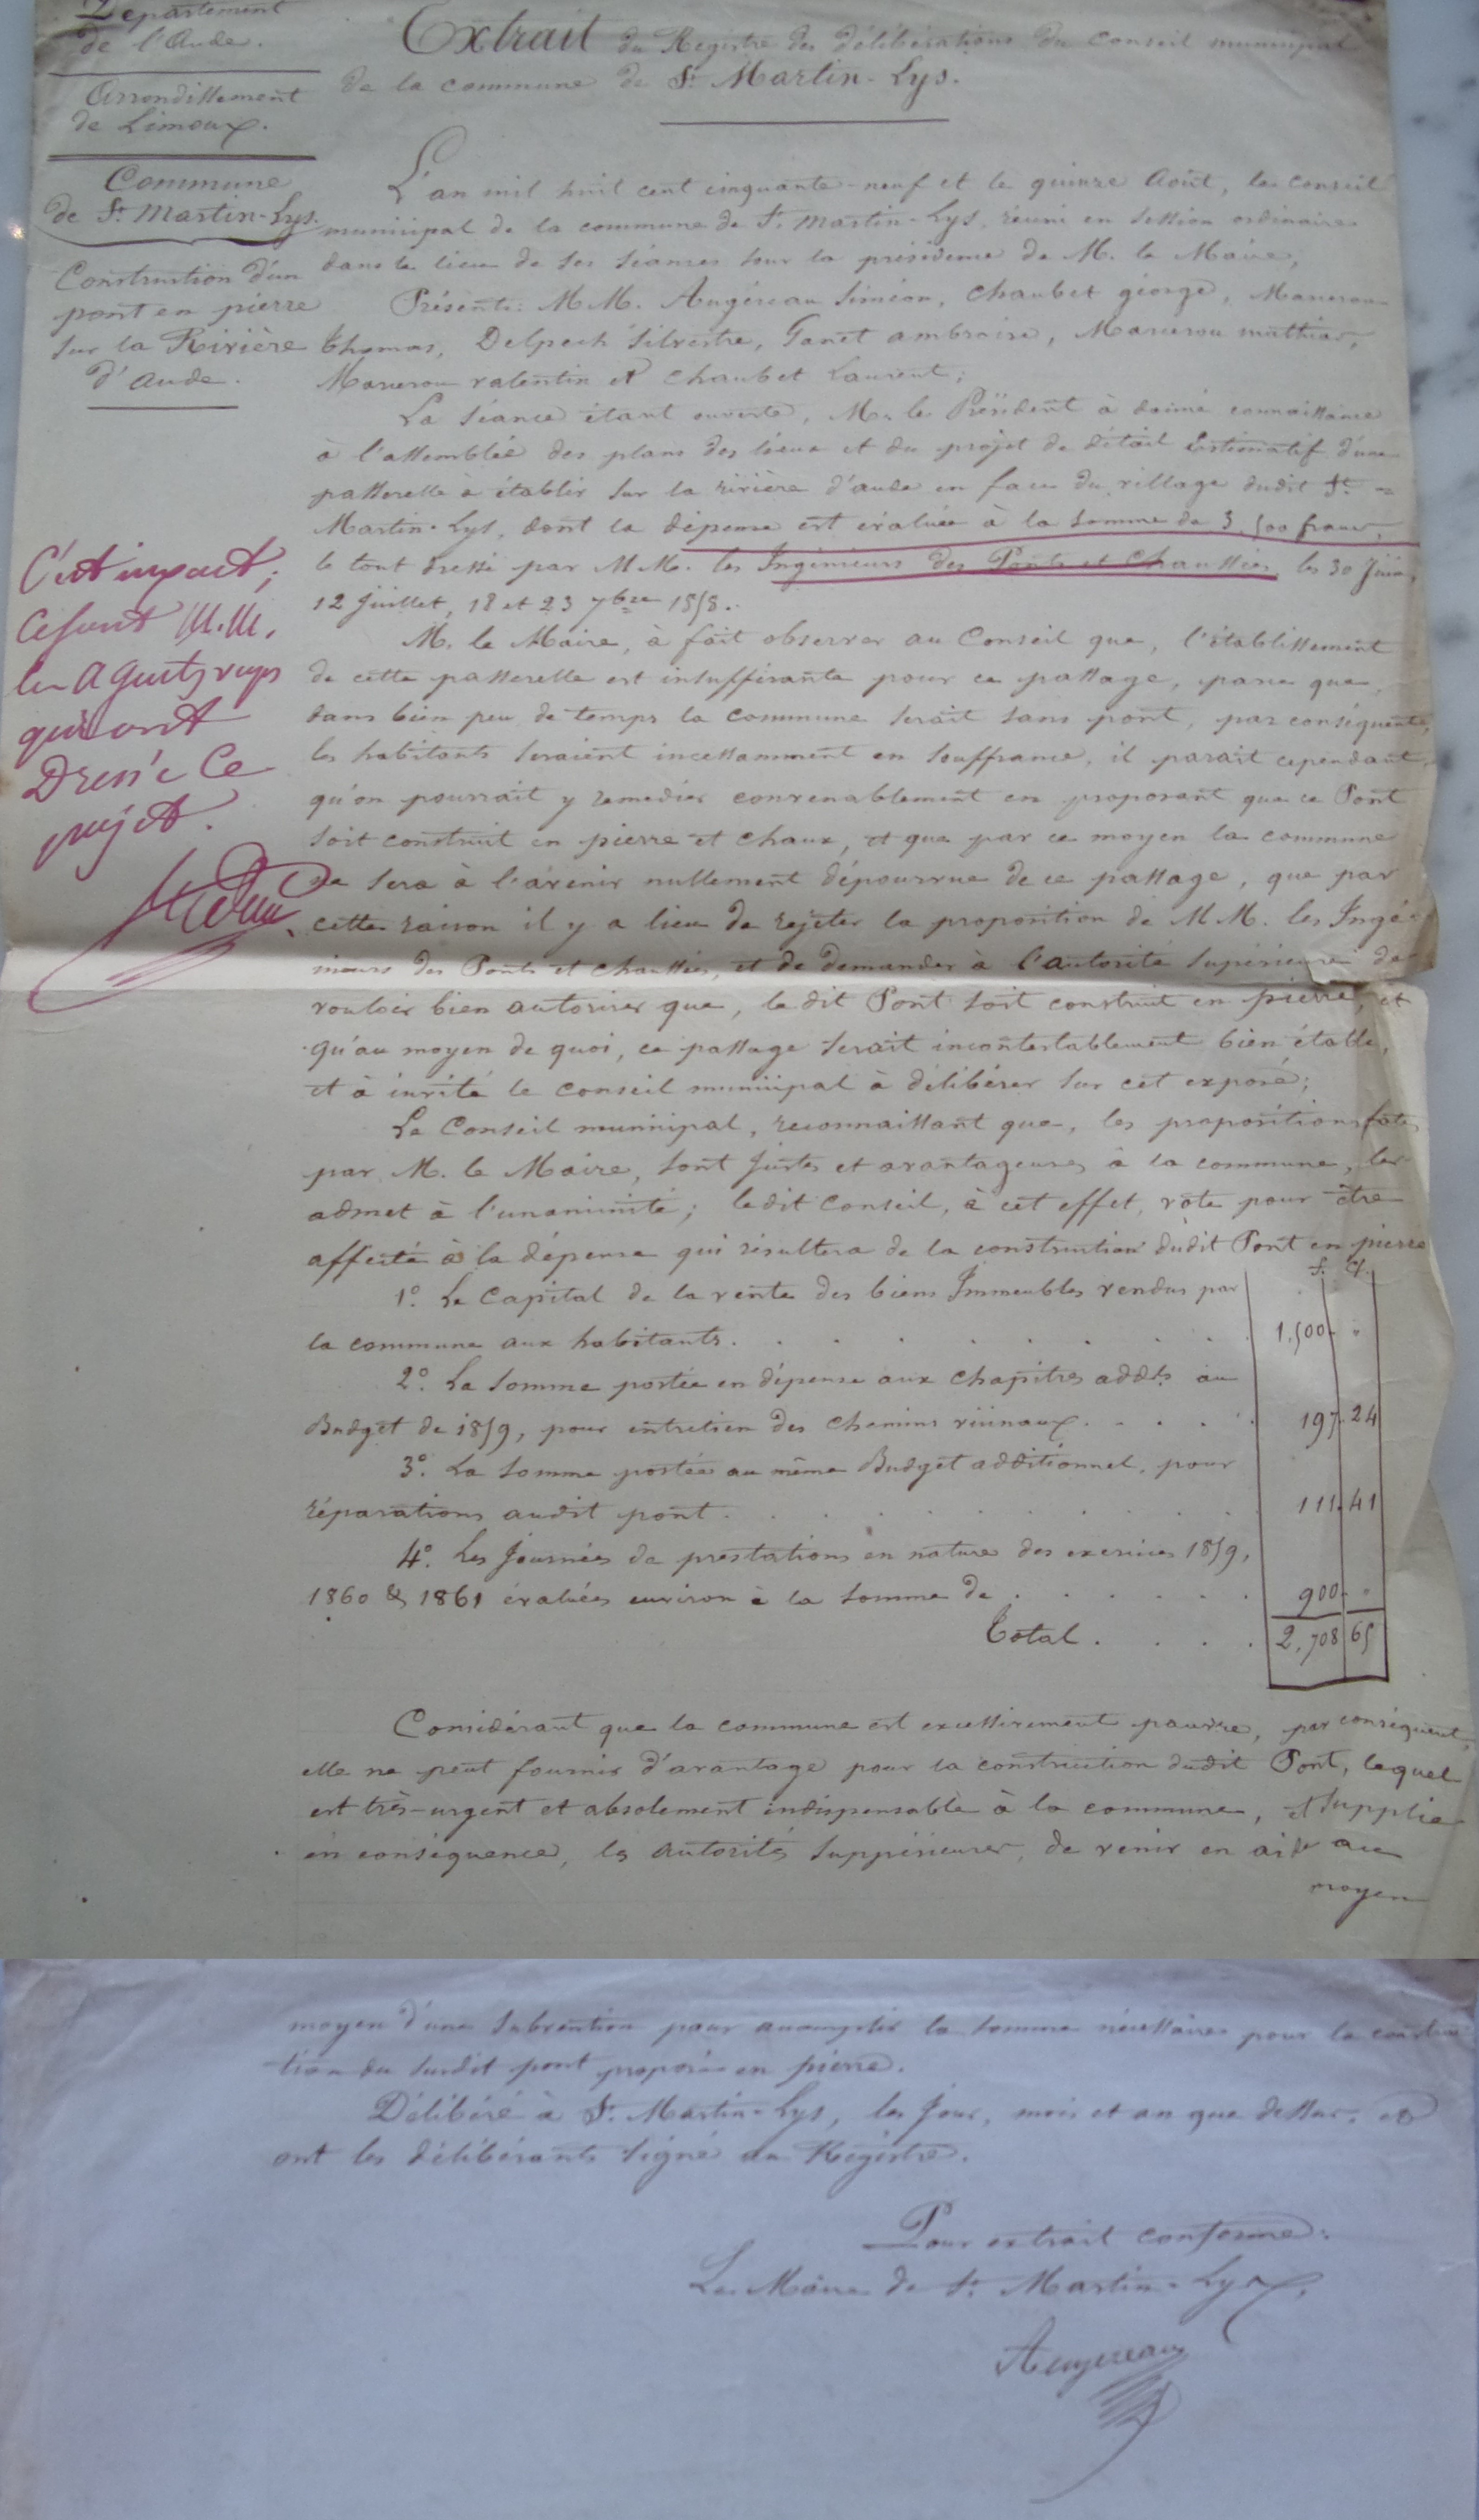 Département
de l'Aude.
Arrondissement
de Limoux.
Commune
de St Martin-Lys.
Construction d'un
pont en pierre
sur la Rivière
d'Aude.
Extrait du Registre des délibérations du Conseil municipal
de la commune de St Martin-Lys.
L'an mil huit cent cinquante-neuf et le quinze Août, le conseil
municipal de la commune de St Martin-Lys, réuni en session ordinaire
dans le lieu de ses séances sous la présidence de M. le Maire,
Présents: MM. Augéreau Siméon, Chaubet géorge, Marcerou
Thomas, Delpech Silvestre, Ganet ambroise, Marcerou mathias,
Marcerou valentin et Chaubet Laurent;
La séance étant ouverte, M. le Président à donné connaissance
à l'assemblée des plans des lieux et du projet de détail Estimatif d'une
passerelle à établir sur la rivière d'aude en face du village dudit St =
Martin-Lys, dont la dépense est évaluée à la somme de 3,500 francs,
le tout dressé par MM. les Ingénieurs des Ponts et Chaussées, les 30 Juin,
12 Juillet, 18 et 23 7bre 1858.
C'est inexact;
ce sont M.M.
les Agents voyers
qui ont
Dressé Ce
projet.
M. le Maire, à fait observer au Conseil que, l'établissement
de cette passerelle est insuffisante pour ce passage, parce que,
dans bien peu de temps la commune serait sans pont, par conséquent,
les habitants seraient incessamment en souffrance, il parait cependant,
qu'on pourrait y remedier convenablement en proposant que ce Pont
soit construit en pierre et chaux, et que par ce moyen la commune
ne sera à l'avenir nullement dépourvue de ce passage, que par
cette raison il y a lieu de rejéter la proposition de MM. les Ingé-
nieurs des Ponts et chaussées, et de demander à l'autorité supérieure de
vouloir bien autoriser que, le dit Pont soit construit en pierre, et
qu'au moyen de quoi, ce passage serait incontestablement bien établi,
et à invité le conseil municipal à délibérer sur cet exposé;
Le Conseil municipal, reconnaissant que, les propositions faites
par M. le Maire, sont justes et avantageuses à la commune, les
admet à l'unanimité; ledit Conseil, à cet effet, vote pour être
affecté à la dépense qui résultera de la construction dudit Pont en pierre
f. c.
1°. Le Capital de la vente des biens Immeubles vendus par
la commune aux habitants. . . . . . . . 1,500 "
2°. La somme portée en dépense aux chapitres addls au
Budget de 1859, pour entretien des Chemins vicinaux. . . . . 197. 24
3°. La somme portée au même Budget additionnel, pour
réparations audit pont. . . . . . . . 111. 41
4°. Les Journées de prestations en nature des exercices 1859,
1860 & 1861 évaluées environ à la somme de . . . . . . 900. "
Total . . . . 2,708 65
Considérant que la commune est excessivement pauvre, par conséquent,
elle ne peut fournir d'avantage pour la construction dudit Pont, lequel
est très-urgent et absolement indispensable à la commune, et supplie
en conséquence, les autorités suppérieures, de venir en aide au
moyen
moyen d'une subvention pour accomplir la somme nécéssaire pour la construc
-tion du susdit pont proposé en pierre.
Délibéré à St Martin-Lys, les jour, mois et an que dessus, et
ont les délibérants signé au Régistre.
Pour extrait conforme:
Le Maire de St Martin-Lys,
Augereau